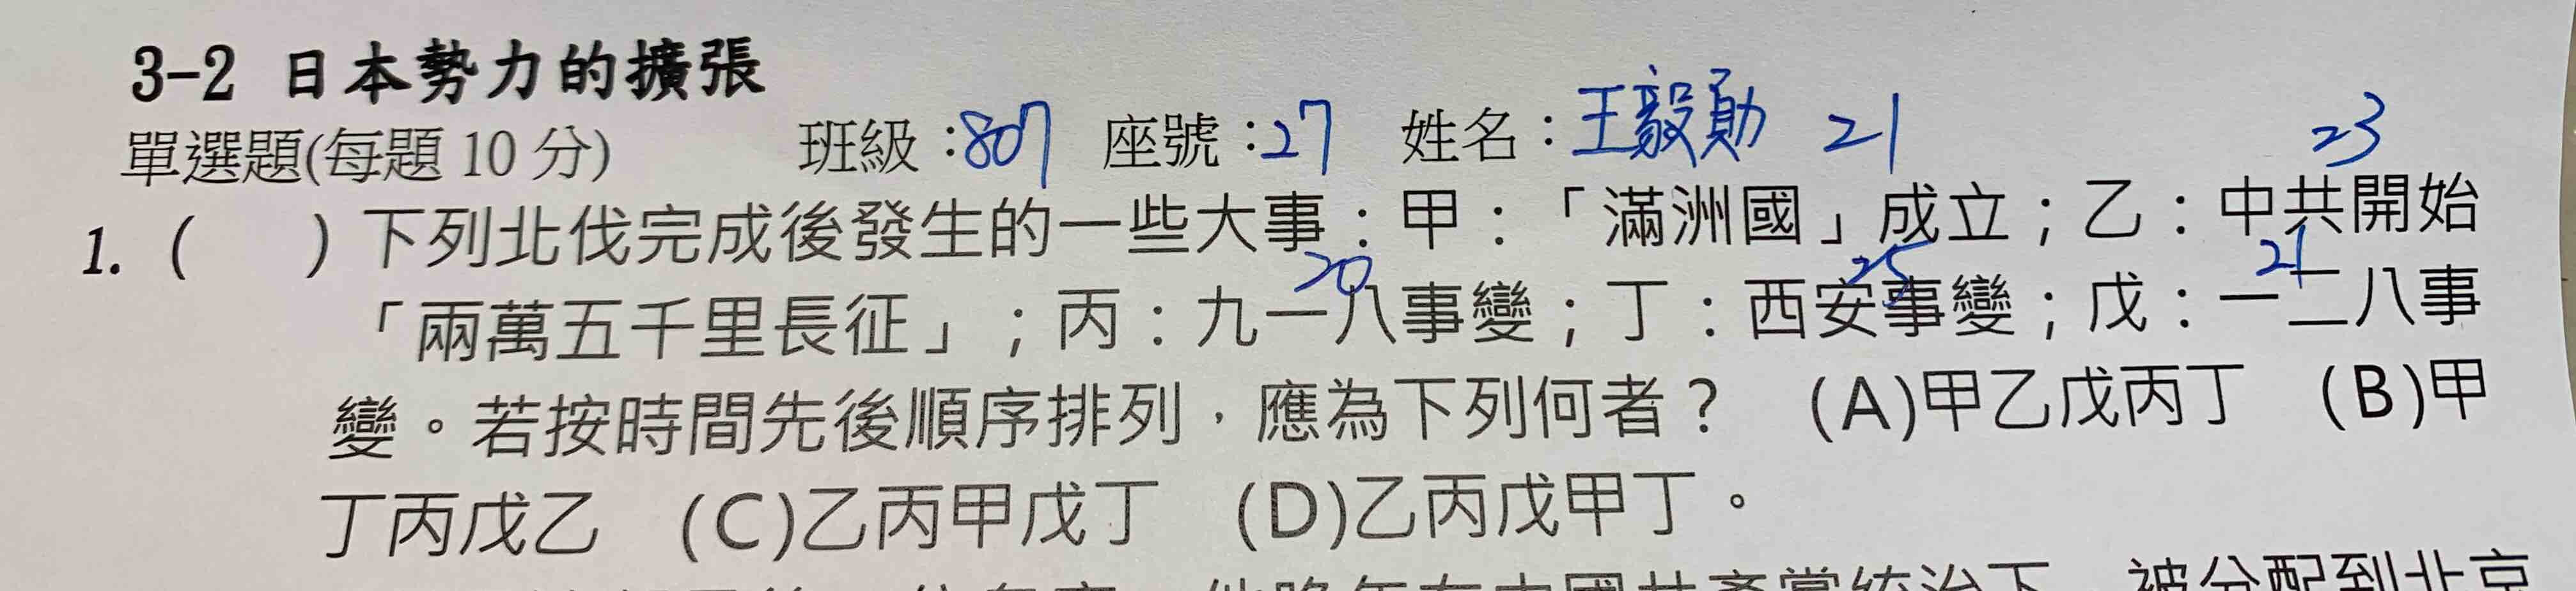 3-2 日本勢力的擴張
單選題(每題 10 分) 班級：807 座號：27 姓名：王毅勛 21 23
1. ( ) 下列北伐完成後發生的一些大事：甲：「滿洲國」成立；乙：中共開始
20 25 21
「兩萬五千里長征」；丙：九一八事變；丁：西安事變；戊：一二八事
變。若按時間先後順序排列，應為下列何者？ (A)甲乙戊丙丁 (B)甲
丁丙戊乙 (C)乙丙甲戊丁 (D)乙丙戊甲丁。